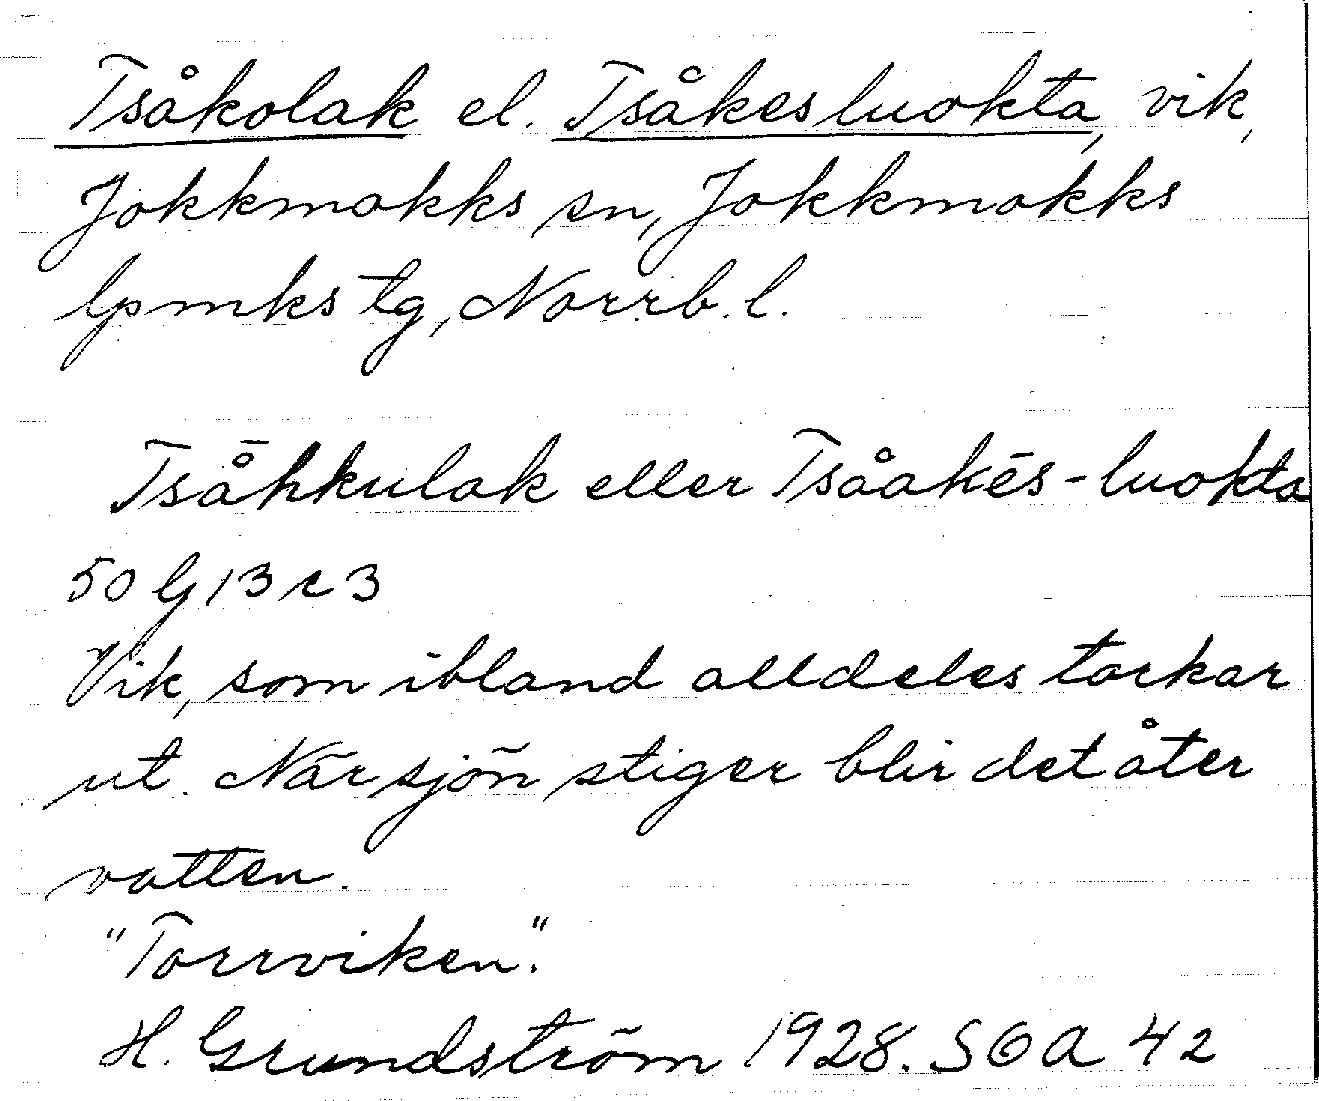 Tsåkolak el. Tsåkesluokta, vik,
Jokkmokks sn, Jokkmokks
lpmks tg, Norrb. l.
Tså̄hkulak eller Tsåakēs-luokta
50 G 13 c 3
Vik, som ibland alldeles torkar
ut. När sjön stiger blir det åter
vatten.
"Torrviken".
H. Grundström 1928. SOA 42